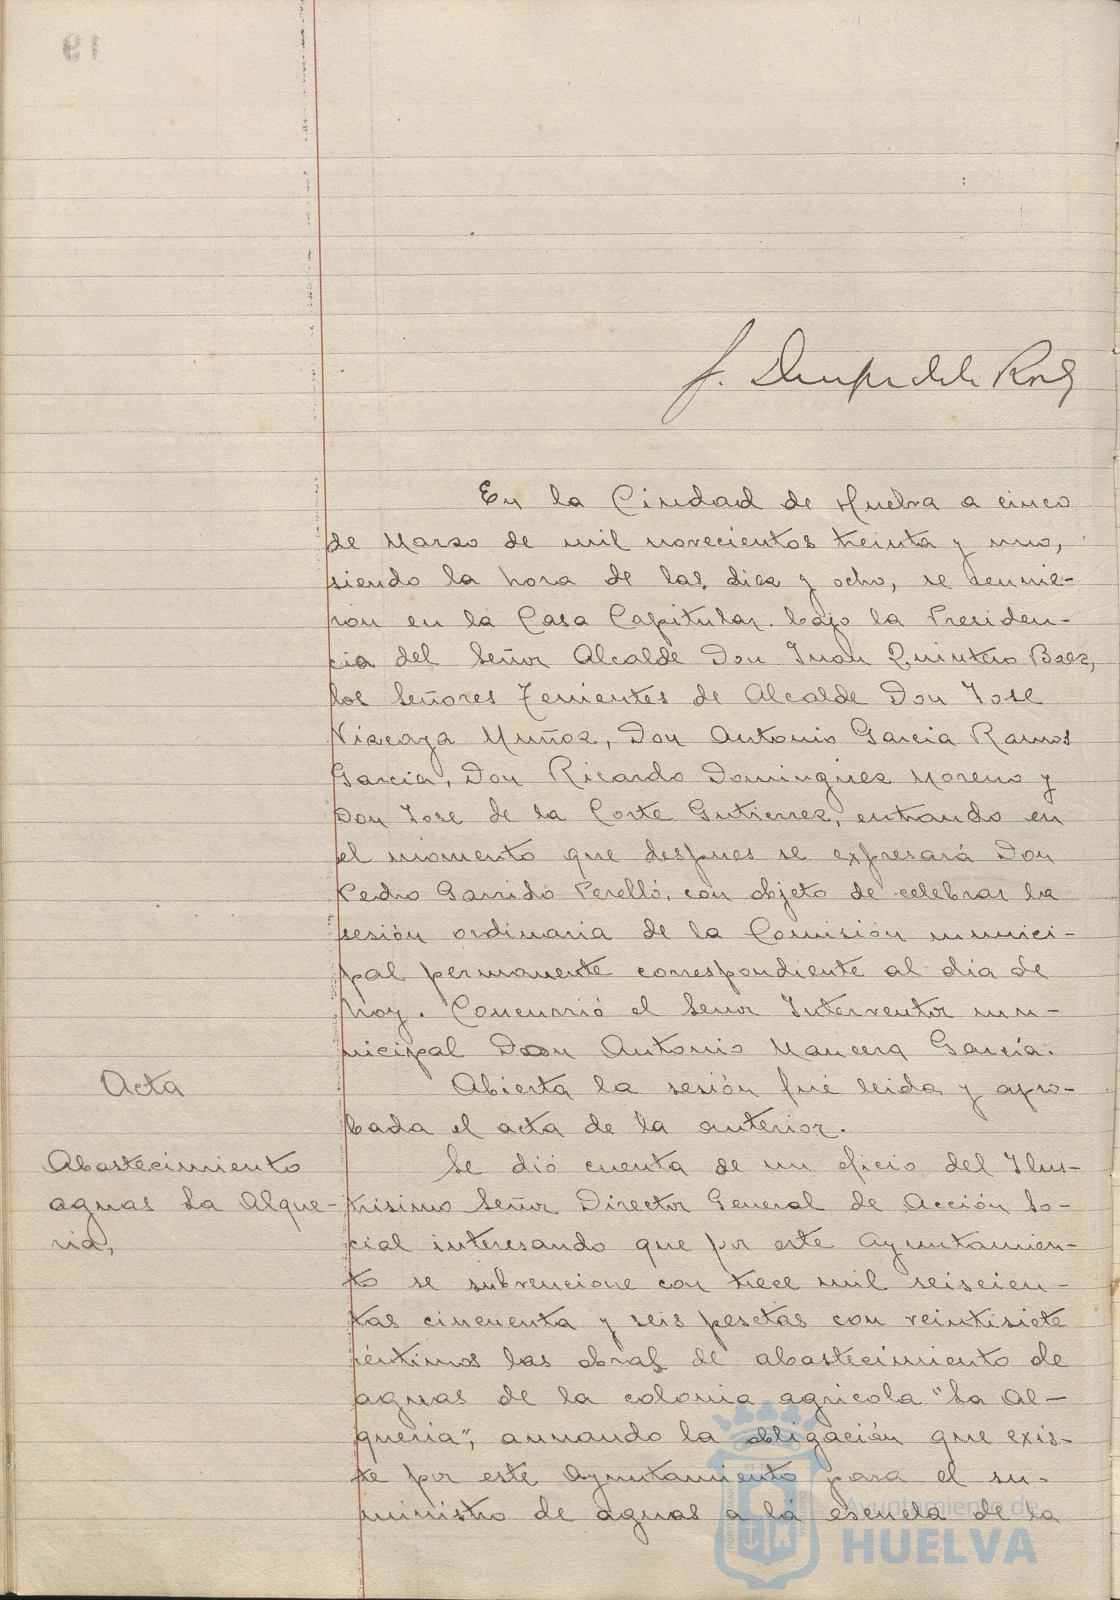 19
En la Ciudad de Huelva a cinco
de Marzo de mil novecientos treinta y uno,
siendo la hora de las diez y ocho, se reunie-
ron en la Casa Capitular bajo la Presiden-
cia del Señor Alcalde Don Juan Quintero Baez,
los Señores Tenientes de Alcalde Don Jose
Vizcaya Muñoz, Don Antonio Garcia Ramos
Garcia, Don Ricardo Dominguez Moreno y
Don Jose de la Corte Gutierrez, entrando en
el momento que despues se expresará Don
Pedro Garrido Perelló, con objeto de celebrar la
sesión ordinaria de la Comisión munici-
pal permanente correspondiente al día de
hoy. Concurrió el Señor Interventor mu-
nicipal Don Antonio Mancera García.
Acta
Abierta la sesión fué leida y apro-
bada el acta de la anterior.
Abastecimiento
aguas La Alque-
ria,
Se dió cuenta de un oficio del Ilus-
trisimo Señor Director General de Acción So-
cial interesando que por este Ayuntamien-
to se subvencione con trece mil seiscien-
tas cincuenta y seis pesetas con veintisiete
céntimos las obras de abastecimiento de
aguas de la colonia agricola "La Al-
queria", aunando la obligación que exis-
te por este Ayuntamiento para el su-
ministro de aguas a la escuela de la
Ayuntamiento de
HUELVA